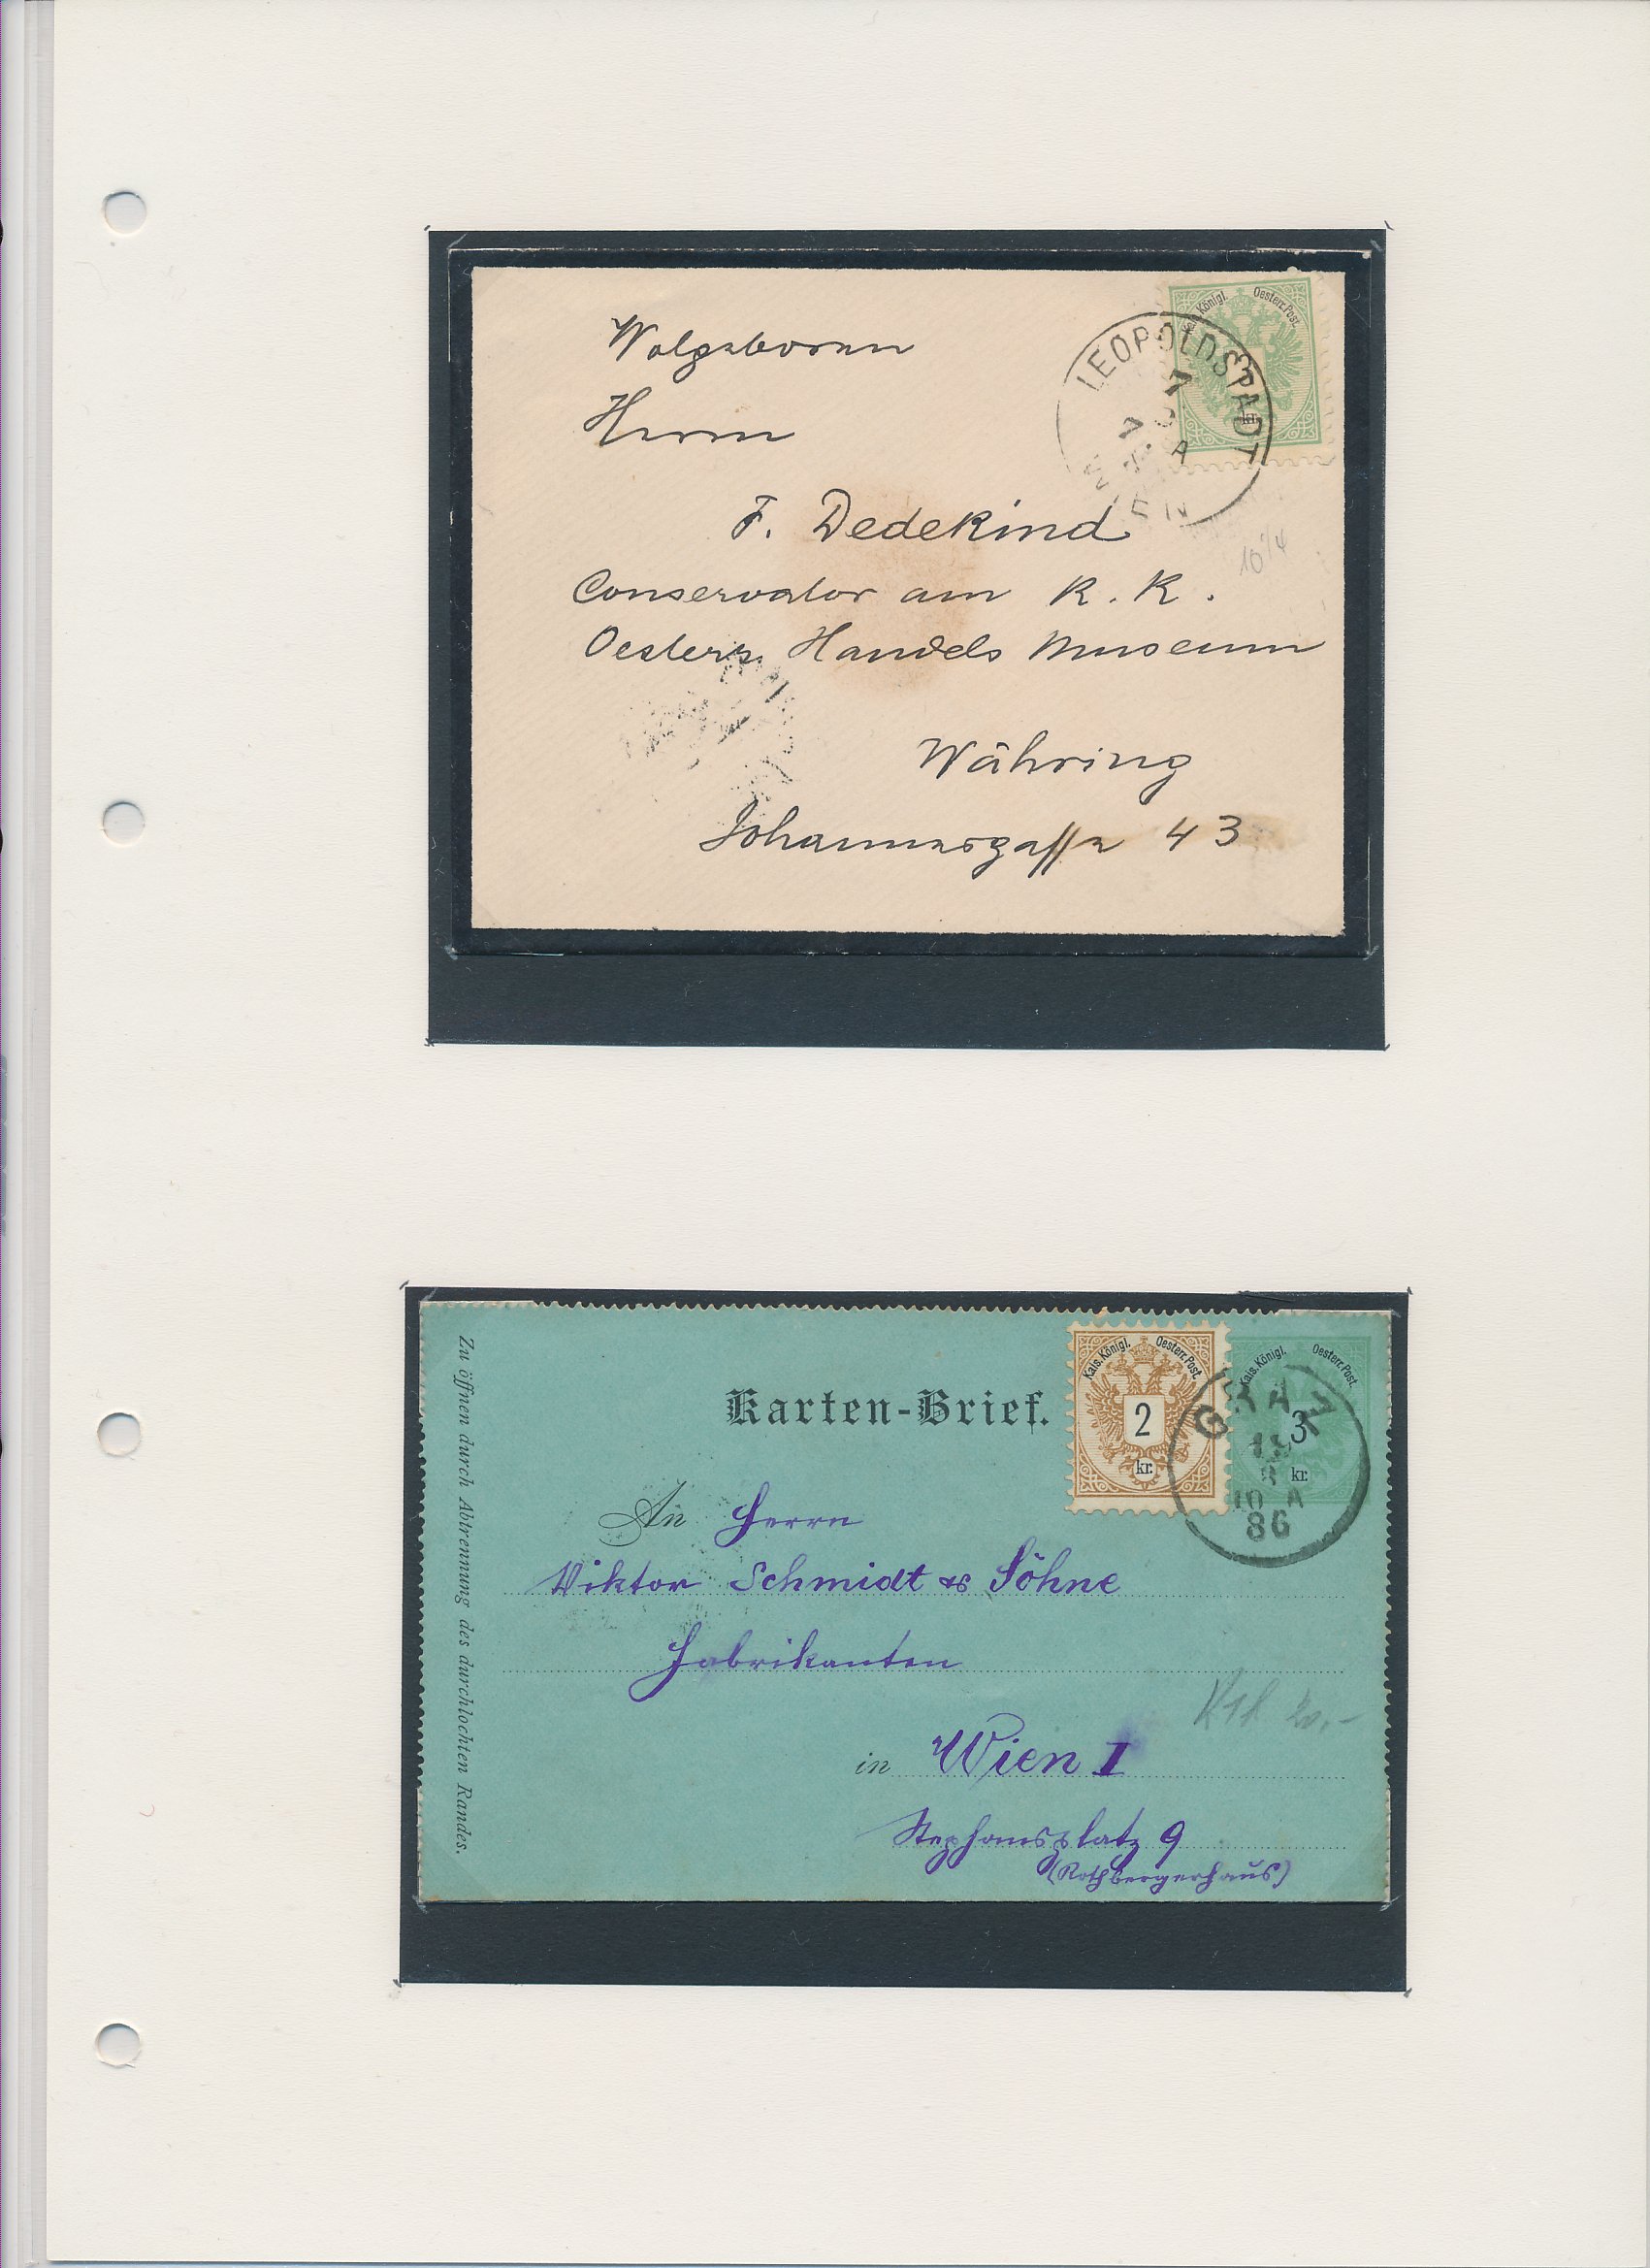 Kais. Königl. Oesterr. Post.
3
kr.
LEOPOLDSTADT
7
7. A
WIEN
Wolgeboren
Herrn
F. Dedekind
Conservator am K. K.
Oesterr. Handels Museum
Währing
Johannesgasse 43
10 1/4
Karten-Brief.
Kais. Königl. Oesterr. Post.
2
kr.
Kais. Königl. Oesterr. Post.
3
kr.
GRAZ
10 A
86
An Herrn
Viktor Schmidt & Söhne
Fabrikanten
in Wien I
Stephansplatz 9
(Rothbergerhaus)
20,-
Zu öffnen durch Abtrennung des durchlochten Randes.